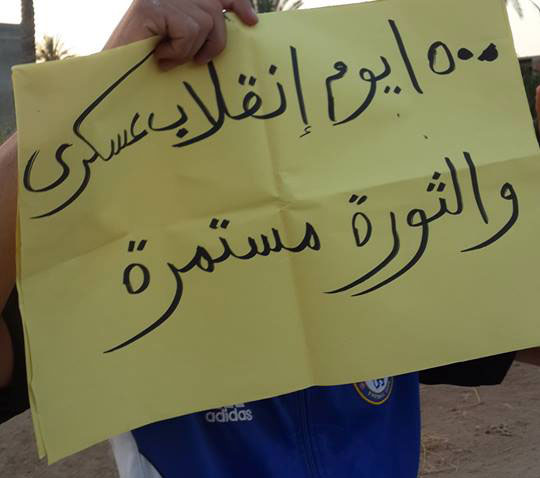 ١٥٠٠ يوم إنقلاب عسكرى
والثورة مستمرة
adidas